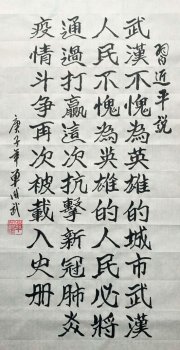 習近平説
武漢不愧為英雄的城市武漢
人民不愧為英雄的人民必將
通過打贏這次抗擊新冠肺炎
疫情斗争再次被載入史册
庚子年